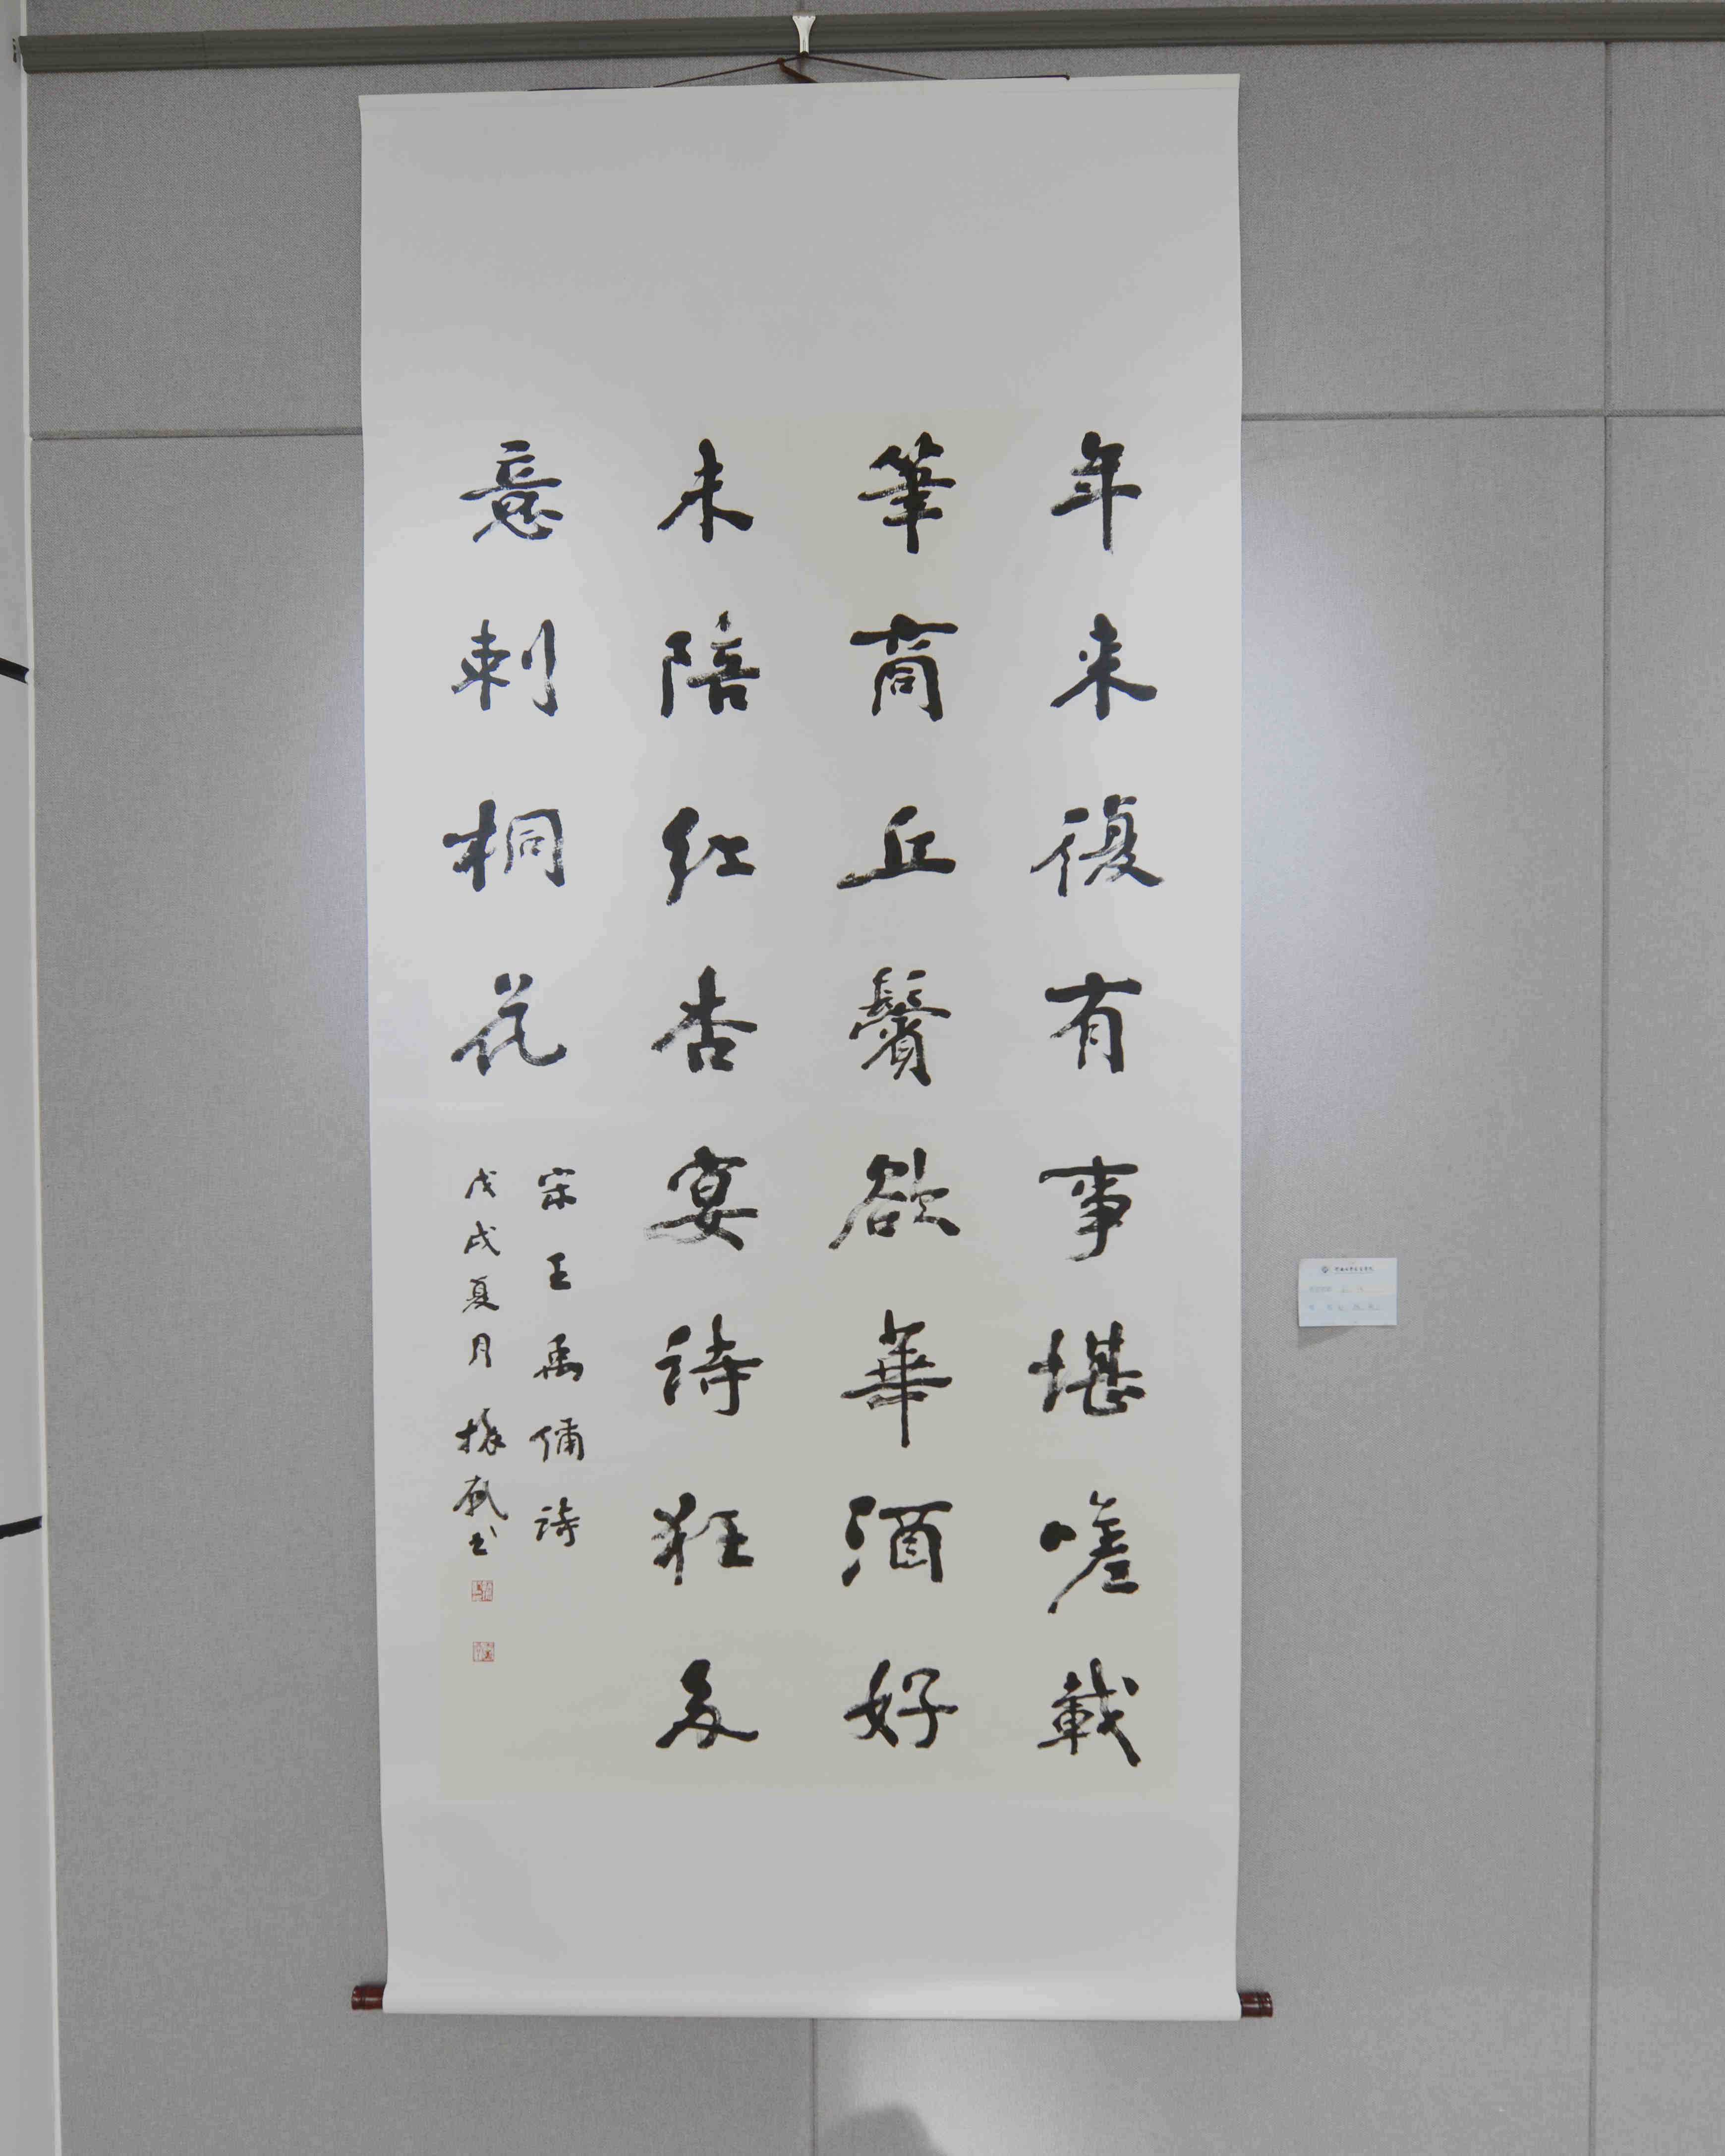 年来復有事堪嗟載
筆商丘鬢欲華酒好
未陪红杏宴詩狂多
意刺桐花
宋王禹偁詩
戊戌夏月振 书